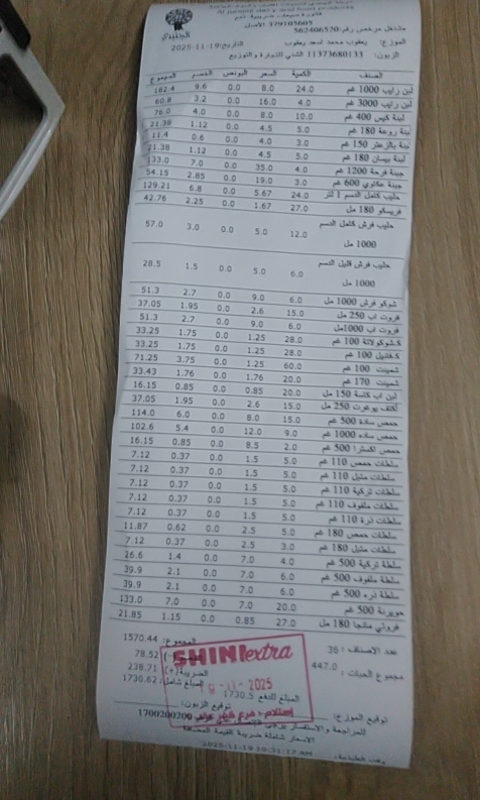 فاتورة مبيعات ضريبية-
الأصل 379105605
مشتغل مرخص رقم:562406520
الموزع: يعقوب محمد اسعد يعقوب التاريخ:2025-11-19
الزبون: 11373680133 الشني للتجارة والتوزيع
الصنف الكمية السعر البونص الخصم المجموع
لبن رايب 1000 غم 24.0 8.0 0.0 9.6 182.4
لبن رايب 3000 غم 4.0 16.0 0.0 3.2 60.8
لبنة كيس 400 غم 10.0 8.0 0.0 4.0 76.0
لبنة روعة 180 غم 5.0 4.5 0.0 1.12 21.38
لبنة بالزعتر 150 غم 4.0 3.0 0.0 0.6 11.4
لبنة بيسان 180 غم 5.0 4.5 0.0 1.12 21.38
جبنة فرحة 1200 غم 4.0 35.0 0.0 7.0 133.0
جبنة عكاوي 600 غم 3.0 19.0 0.0 2.85 54.15
حليب كامل الدسم 1 لتر 24.0 5.67 0.0 6.8 129.21
فريسكو 180 مل 27.0 1.67 0.0 2.25 42.76
حليب فرش كامل الدسم 12.0 5.0 0.0 3.0 57.0
1000 مل
حليب فرش قليل الدسم 6.0 5.0 0.0 1.5 28.5
1000 مل
شوكو فرش 1000 مل 6.0 9.0 0.0 2.7 51.3
فروت اب 250 مل 15.0 2.6 0.0 1.95 37.05
فروت اب 1000مل 6.0 9.0 0.0 2.7 51.3
ك.شوكولاتة 100 غم 28.0 1.25 0.0 1.75 33.25
ك.فانيل 100 غم 28.0 1.25 0.0 1.75 33.25
شمينت 100 غم 60.0 1.25 0.0 3.75 71.25
شمينت 170 غم 20.0 1.76 0.0 1.76 33.43
لبن اب كاسة 150 مل 20.0 0.85 0.0 0.85 16.15
أكتف يوغرت 250 مل 15.0 2.6 0.0 1.95 37.05
حمص سادة 500 غم 15.0 8.0 0.0 6.0 114.0
حمص ساده 1000 غم 9.0 12.0 0.0 5.4 102.6
حمص اكسترا 500 غم 2.0 8.5 0.0 0.85 16.15
سلطات حمص 110 غم 5.0 1.5 0.0 0.37 7.12
سلطات متبل 110 غم 5.0 1.5 0.0 0.37 7.12
سلطات تركية 110 غم 5.0 1.5 0.0 0.37 7.12
سلطات ملفوف 110 غم 5.0 1.5 0.0 0.37 7.12
سلطات ذرة 110 غم 5.0 1.5 0.0 0.37 7.12
سلطات حمص 180 غم 5.0 2.5 0.0 0.62 11.87
سلطات متبل 180 غم 3.0 2.5 0.0 0.37 7.12
سلطة تركية 500 غم 4.0 7.0 0.0 1.4 26.6
سلطة ملفوف 500 غم 6.0 7.0 0.0 2.1 39.9
سلطة ذره 500 غم 6.0 7.0 0.0 2.1 39.9
حويرنة 500 غم 20.0 7.0 0.0 7.0 133.0
فروتي مانجا 180 مل 27.0 0.85 0.0 1.15 21.85
عدد الاصناف : 36 المجموع: 1570.44
مجموع الحبات : 447.0 78.52
الضريبة(+) 238.71
المبلغ شامل: 1730.62
المبلغ للدفع 1730.5
SHINI extra
19-11-2025
توقيع الموزع: توقيع الزبون:
للمراجعة والاستفسار يرجى 1700200200
الاسعار شاملة ضريبة القيمة المضافة
2025/11/19 10:31:17 AM